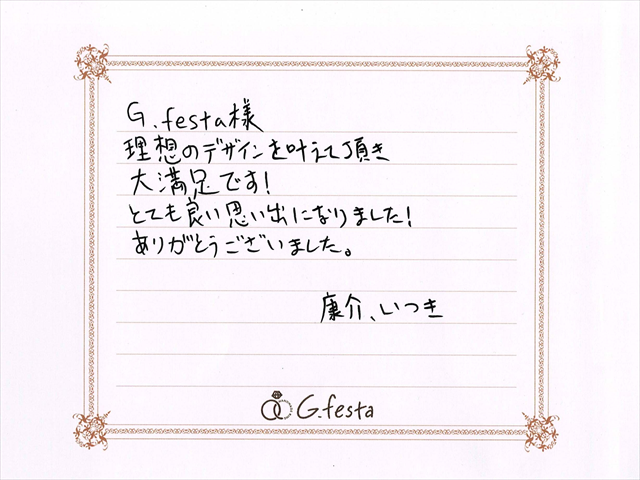 G.festa様
理想のデザインを叶えて頂き
大満足です!
とても良い思い出になりました!
ありがとうございました。
康介、いつき
G.festa